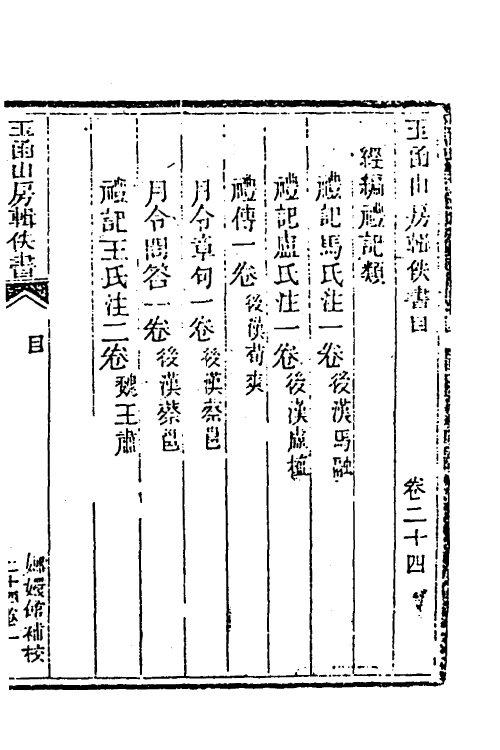 玉函山房輯佚書目 卷二十四
經編禮記類
禮記馬氏注一卷後漢馬融
禮記盧氏注一卷後漢盧植
禮傳一卷後漢荀爽
月令章句一卷後漢蔡邕
月令問答一卷後漢蔡邕
禮記王氏注二卷魏王肅
玉函山房輯佚書 目
嫏嬛館補校